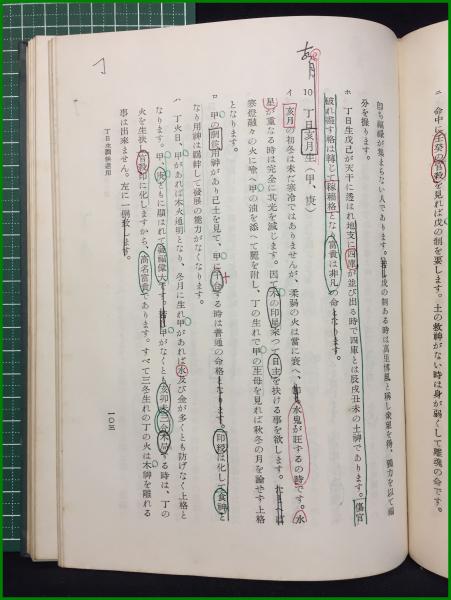 ニ 命中に壬癸の官殺を見れば戊の制を要します。土の救神がない時は身が弱くして離魂の命です。
自ら福縁が集まらない人であります。戊の制ある時は
分を操ります。
ホ 丁日生戊己が天干に透出れ地支に四庫が並び出る時で四庫とは辰戌丑未の土神であります。傷官
破れ盡す格は轉じて稼穡格となり富貴は非凡の命となります。
亥月
10 丁日亥月生(甲、庚)
イ 亥月の初冬は未だ寒冷ではありませんが、柔弱の火は當に衰へ、水鬼が旺するの時です。水
星が重なる時は完全に其光を減じます。因て木の印星來つて日主を扶ける事を欲します。
寒燈融々の火に喩へ甲の油を添へて麗を附し、丁の生れで甲の生母を見れば秋冬の月を論ぜす上格
となります。
ロ 甲の用神があり己土を見て、甲に干合する時は普通の命格となります。印綬は化して食神と
なり用神は羈絆して發展の能力がなくなります。
ハ 丁火日、甲があれば木火通明となり、冬月に生れ甲があれば水及び金が多くとも防げなく上格と
なります。甲、庚ともに顯はれて偉大です。甲がなくとも亥卯未三合木局する時は、丁の
火を生扶し官殺印に化しますから、高名富貴であります。すべて三冬生れの丁の火は木神を離れる
事は出來ません。左に一例致します。
丁日生調候選用
一〇三
丁